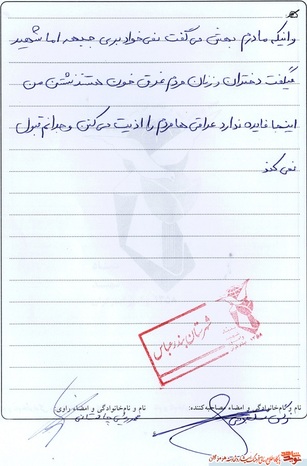 و اینکه مادرم بهش می گفت نمی خواد بری جبهه اما شهید
میگفت دختران و زنان مردم غرق خون هستند نشستن من
اینجا فایده ندارد عراقی ها مردم را اذیت می کنن وجدانم قبول
نمی کند
شهرستان بندرعباس
نام و نام‌خانوادگی و امضاء مصاحبه‌کننده:
نام و نام‌خانوادگی و امضاء راوی